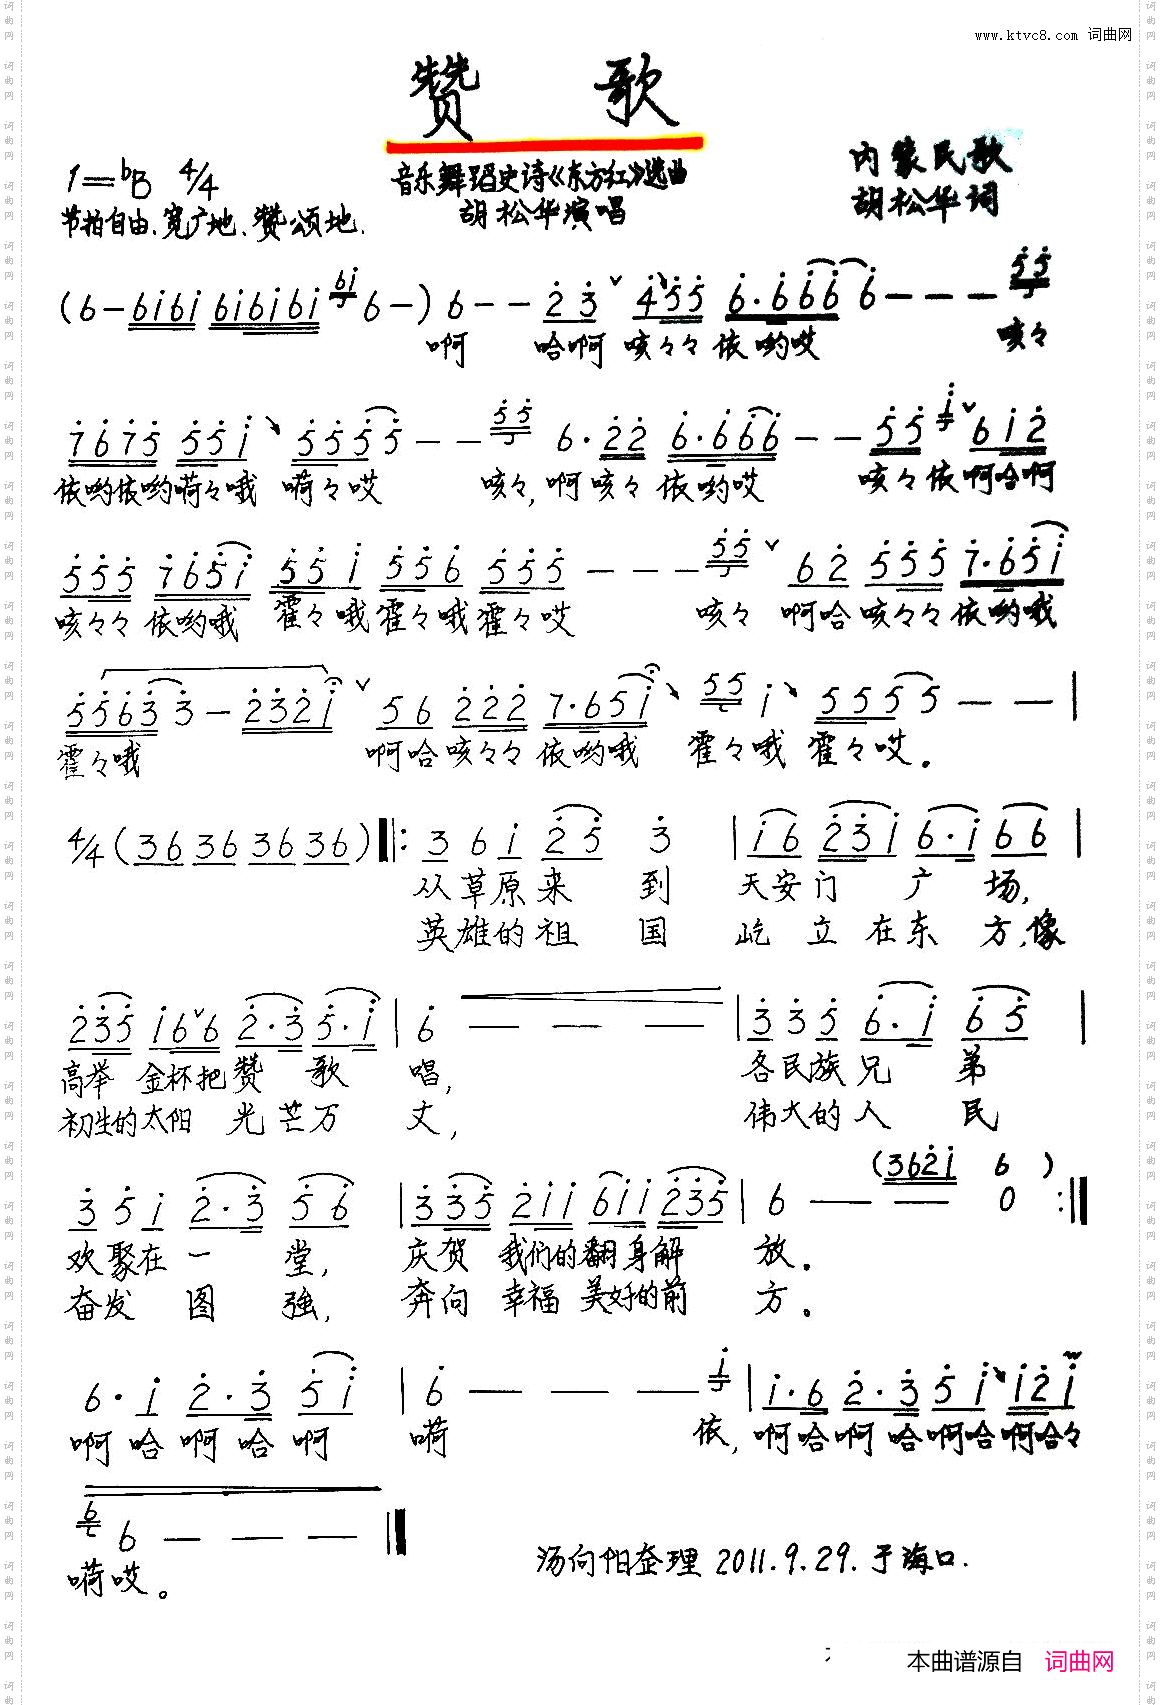 www.ktvc8.com 词曲网
赞 歌
1=bB 4/4
音乐舞蹈史诗《东方红》选曲
内蒙民歌
节拍自由、宽广地、赞颂地.
胡松华演唱
胡松华词
(6-6i6i 6i6i6i 6i 6-) 6-- 2 3 ˅ 4 5 5 6·666 6--- 5 5
啊 哈啊 咳々々 依哟哎 咳々
7675 55i 5555 -- 55 6·22 6·666 -- 55 i ˅ 6i2
依哟依哟嗬々哦 嗬々哎 咳々,啊咳々 依哟哎 咳々依啊哈啊
555 765i 55i 556 555 --- 55 ˅ 62 555 7·65i
咳々々 依哟哦 霍々哦霍々哦霍々哎 咳々 啊哈咳々々依哟哦
5563 3-232i ˅ 56 222 7·65i 55 i 5555 -- |
霍々哦 啊哈咳々々 依哟哦 霍々哦 霍々哎。
4/4 (36 36 36 36) ‖: 3 6 i 25 3 | i6 23i 6·i 66 |
从草原来 到 天安门 广 场,
英雄的祖 国 屹 立 在东 方,像
235 i6˅6 2·3 5·i | 6 --- | 335 6·i 65 |
高举 金杯把赞 歌 唱, 各民族兄 弟
初生的太阳 光芒万 丈, 伟大的人 民
(362i 6 )
3 5 i 2·3 56 | 335 2ii 6ii 235 | 6 -- 0 :‖
欢聚在一 堂, 庆贺 我们的翻身解 放。
奋发 图 強, 奔向 幸福 美好的前 方。
6·i 2·3 5i | 6 --- i | i·6 2·3 5i i2i
啊哈啊哈啊 嗬 依,啊哈啊 哈啊哈啊哈々
6 6 --- ‖
嗬哎。
汤向阳整理 2011.9.29.于海口.
本曲谱源自 词曲网